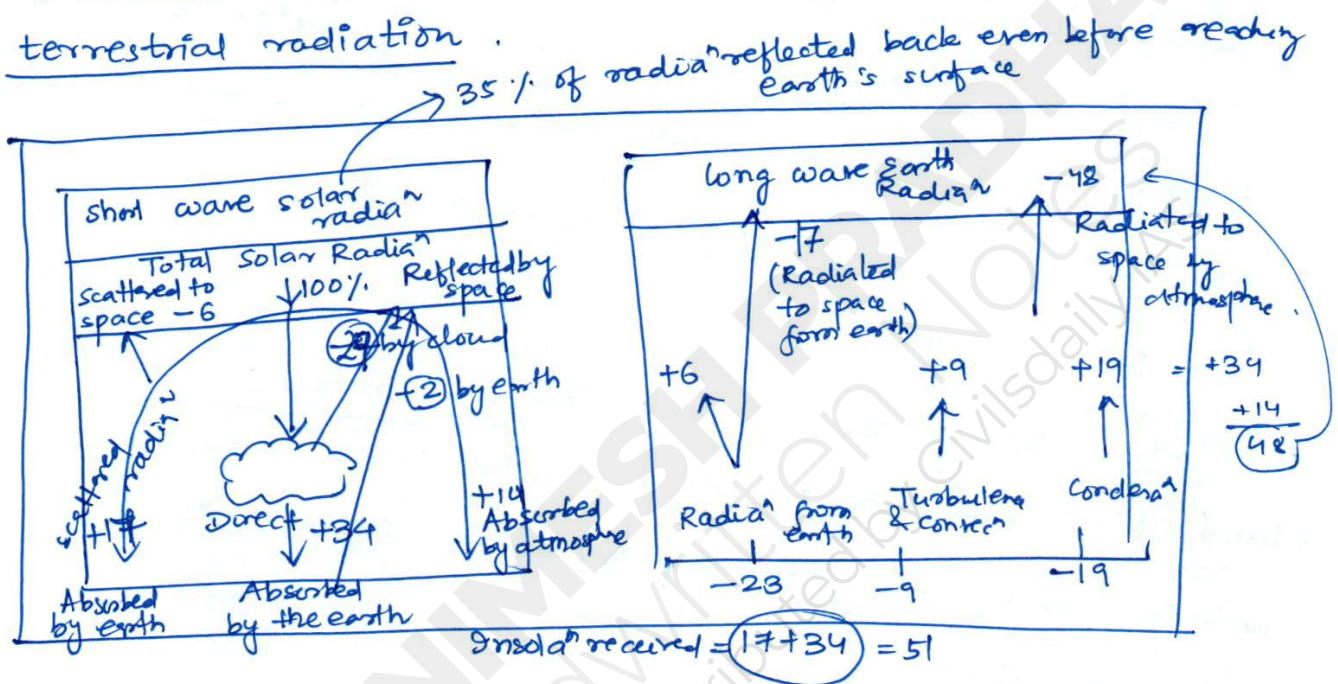 terrestrial radiation .
35 % of radiaⁿ reflected back even before reaching
earth's surface
short wave solar
radiaⁿ
Total Solar Radiaⁿ
↓100%.
scattered to
space -6
Reflected by
space
-27 by cloud
-2 by earth
scattered radiaⁿ
+17
Direct +34
+14
Absorbed
by atmosphere
Absorbed
by earth
Absorbed
by the earth
long wave Earth
Radiaⁿ
-48
-17
(Radiated
to space
from earth)
Radiated to
space by
atmosphere.
+6
+9
+19 = +34
+14
48
Radiaⁿ from
earth
Turbulence
& convecⁿ
Condensaⁿ
-23
-9
-19
Insolaⁿ received = 17+34 = 51
ANIMESH PRADHAN
Handwritten Notes
Distributed by Civilsdaily IAS